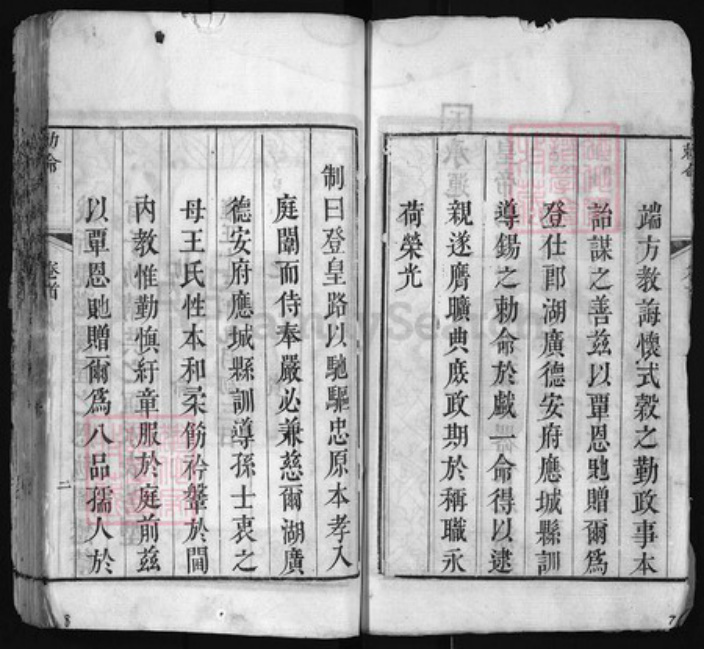 端方教誨懷式穀之勤政事本
詒謀之善茲以覃恩貤贈爾爲
登仕郎湖廣德安府應城縣訓
導錫之勅命於戲一命得以逮
親遂膺曠典庶政期於稱職永
荷榮光
7
制曰登皇路以馳驅忠原本孝入
庭闈而侍奉嚴必兼慈爾湖廣
德安府應城縣訓導孫士衷之
母王氏性本和柔飭衿鞶於閫
內教惟勤慎紆童服於庭前茲
以覃恩貤贈爾爲八品孺人於
勅命
卷首
二
8
FamilySearch